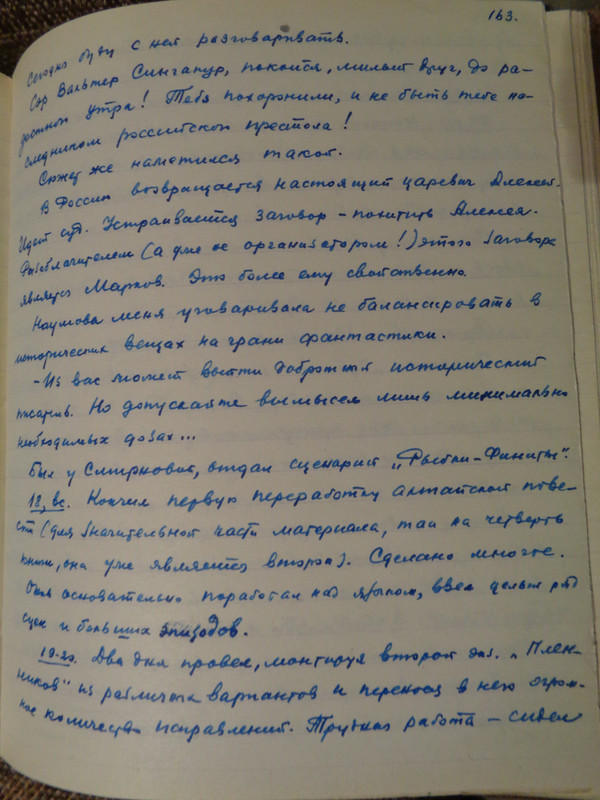 163.
Сегодня буду с ней разговаривать.
Сэр Вальтер Сингапур, покойся, милый друг, до ра-
достного утра! Тебя похоронили, и не быть тебе на-
следником российского престола!
Сюжет же наметился такой.
В Россию возвращается настоящий царевич Алексей.
Идет суд. Устраивается заговор – похитить Алексея.
Разоблачителем (а уже не организатором!) этого заговора
является Марков. Это более ему свойственно.
Наумова меня уговаривала не балансировать в
исторических вещах на грани фантастики.
– Из вас может выйти добротный исторический
писатель. Но допускайте вымысел лишь минимально
необходимых дозах...
Был у Смирновой, отдал сценарий „Рыбки-Финиты".
18, вс. Кончил первую переработку алтайской пове-
сти (для значительной части материала, так на четверть
книги, она уже является второй). Сделано многое.
Очень основательно поработал над языком, ввел целый ряд
сцен и больших эпизодов.
19-20. Два дня провел, монтируя второй экз. „Плен-
ников" из различных вариантов и перенося в него огром-
ное количество исправлений. Трудная работа – сидел